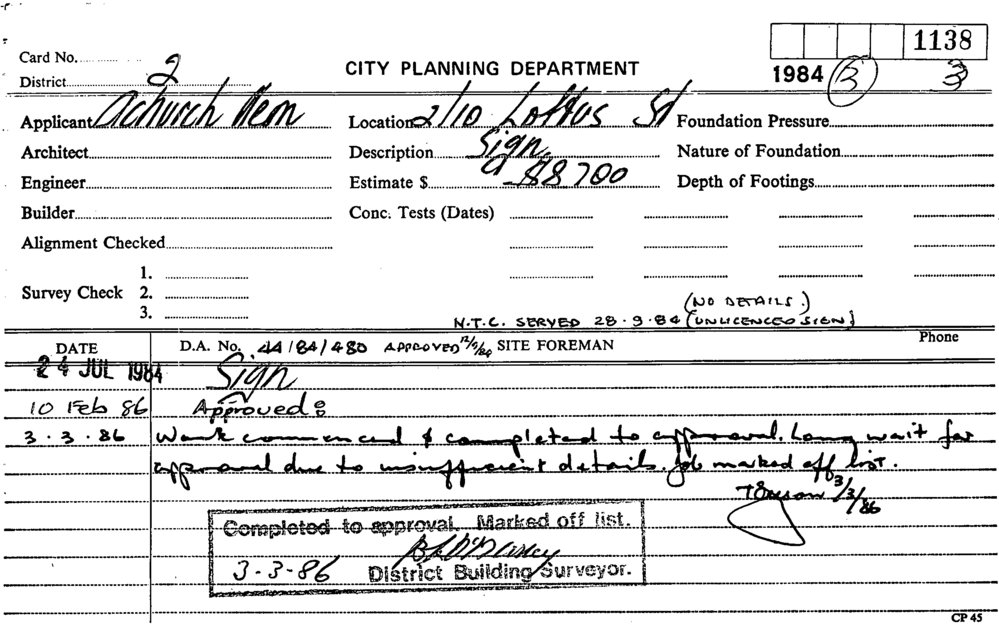 Card No.
1138
District 2
CITY PLANNING DEPARTMENT
1984 (3) 3
Applicant Achurch
Location 2/10 Loftus St
Foundation Pressure
Architect
Description Sign
Nature of Foundation
Engineer
Estimate $ $8700
Depth of Footings
Builder
Conc. Tests (Dates)
Alignment Checked
1.
Survey Check 2.
3.
(NO DETAILS.)
N.T.C. SERVED 28.9.84 (UNLICENCED SIGN)
DATE
D.A. No. 44/84/480 APPROVED 12/9/84 SITE FOREMAN
Phone
24 JUL 1984
Sign
10 Feb 86 Approved:
3.3.86 Work commenced & completed to approval. Long wait for
approval due to insufficient details. Job marked off list.
3/3/86
Completed to approval. Marked off list.
3-3-86 District Building Surveyor.
CP 45